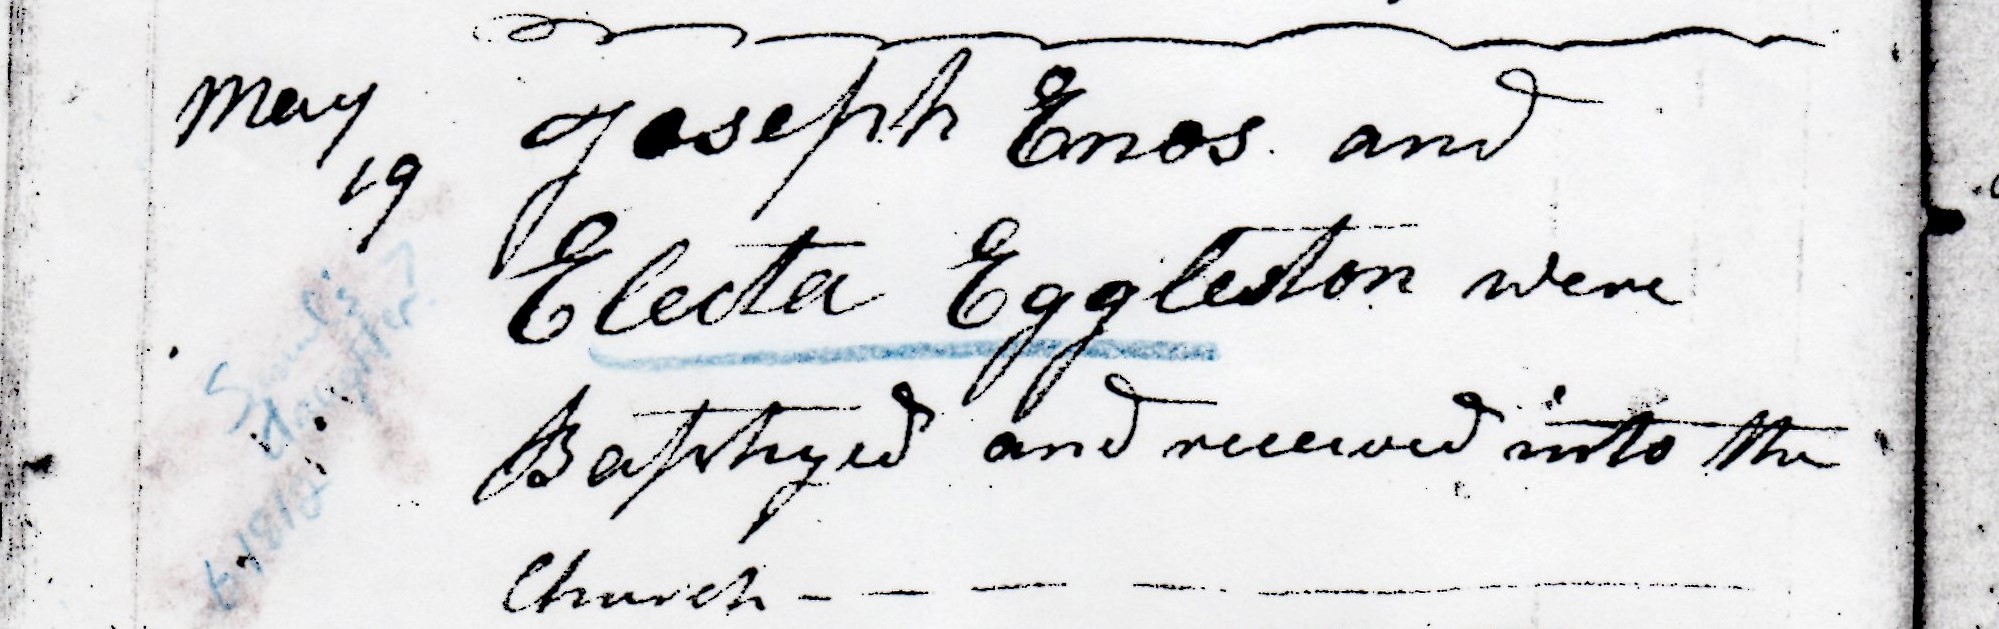 May Joseph Enos and
19
Electa Eggleston were
Baptyzed and received into the
Church
Saml's
daughter?